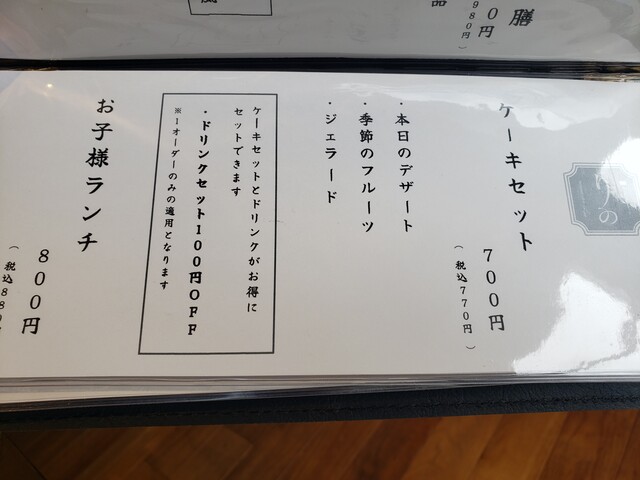 膳
0円
980円)
品
りの
ケーキセット
700円
(税込770円)
・本日のデザート
・季節のフルーツ
・ジェラード
ケーキセットとドリンクがお得に
セットできます
・ドリンクセット100円OFF
※1オーダーのみの適用となります
お子様ランチ
800円
(税込880